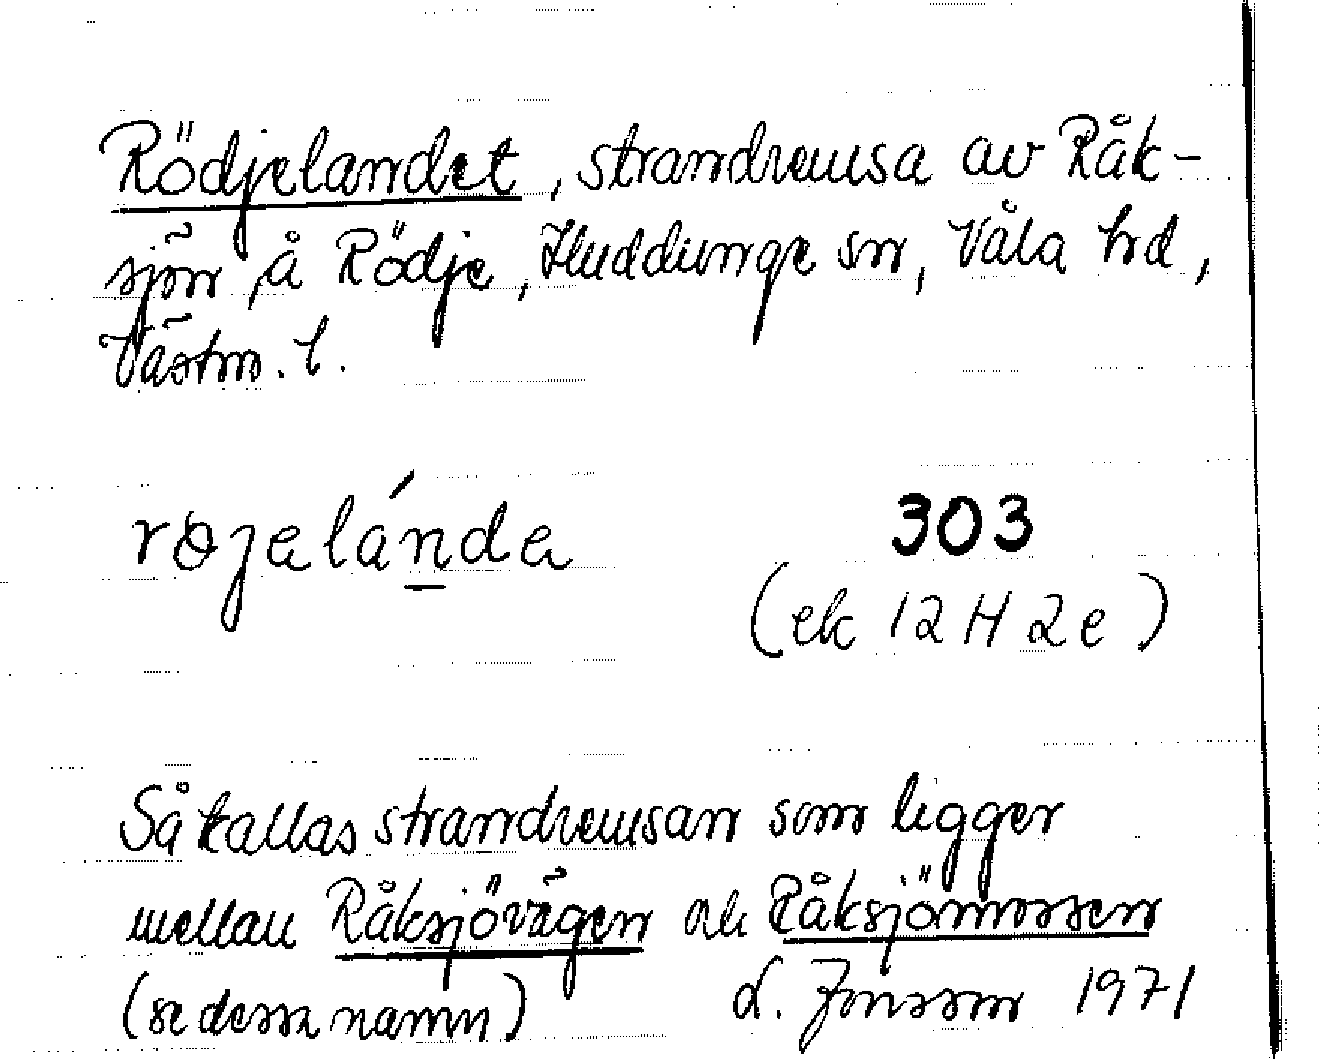 Rödjelandet, strandremsa av Råk-
sjön å Rödje, Huddunge sn, Våla hd,
Västm. l.
røjelánda
303
(ek 12 H 2e)
Så kallas strandremsan som ligger
mellan Råksjövägen och Råksjömossen
(se dessa namn)
L. Jonsson 1971